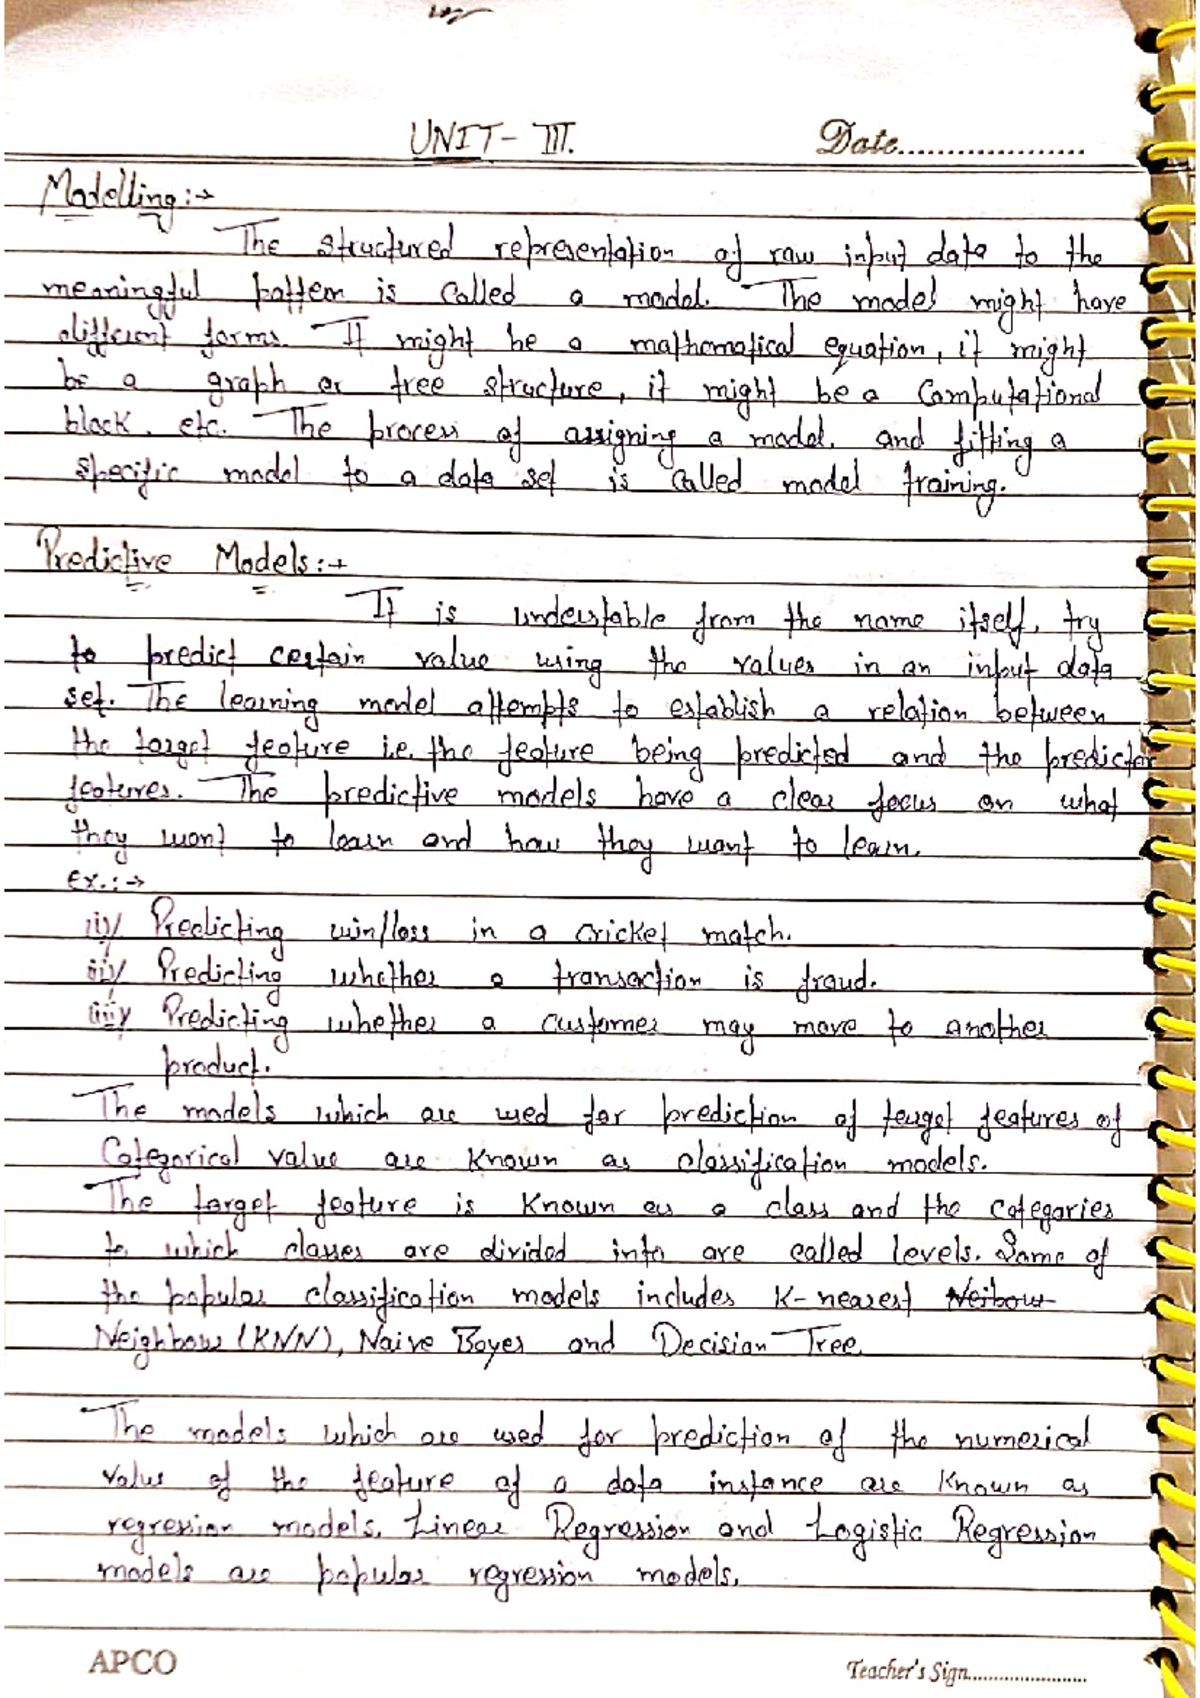 UNIT- III.
Date....................
Modelling:→
The structured representation of raw input data to the
meaningful pattern is called a model. The model might have
different forms. It might be a mathematical equation, it might
be a graph or tree structure, it might be a Computational
block. etc. The process of assigning a model. and fitting a
specific model to a data set is called model training.
Predictive Models:→
It is understable from the name itself, try
to predict certain value using the values in an input data
set. The learning model attempts to establish a relation between
the target feature i.e. the feature being predicted and the predictor
features. The predictive models have a clear focus on what
they want to learn and how they want to learn.
Ex.:→
Predicting win/loss in a cricket match.
ii) Predicting whether a transaction is fraud.
iii) Predicting whether a customer may move to another
product.
The models which are used for prediction of target features of
Categorical value are known as classification models.
The target feature is known as a class and the categories
to which classes are divided into are called levels. Some of
the popular classification models includes K-nearest Neibour
Neighbour (KNN), Naive Bayes and Decision Tree.
The models which are used for prediction of the numerical
value of the feature of a data instance are known as
regression models. Linear Regression and Logistic Regression
models are popular regression models.
APCO
Teacher's Sign........................